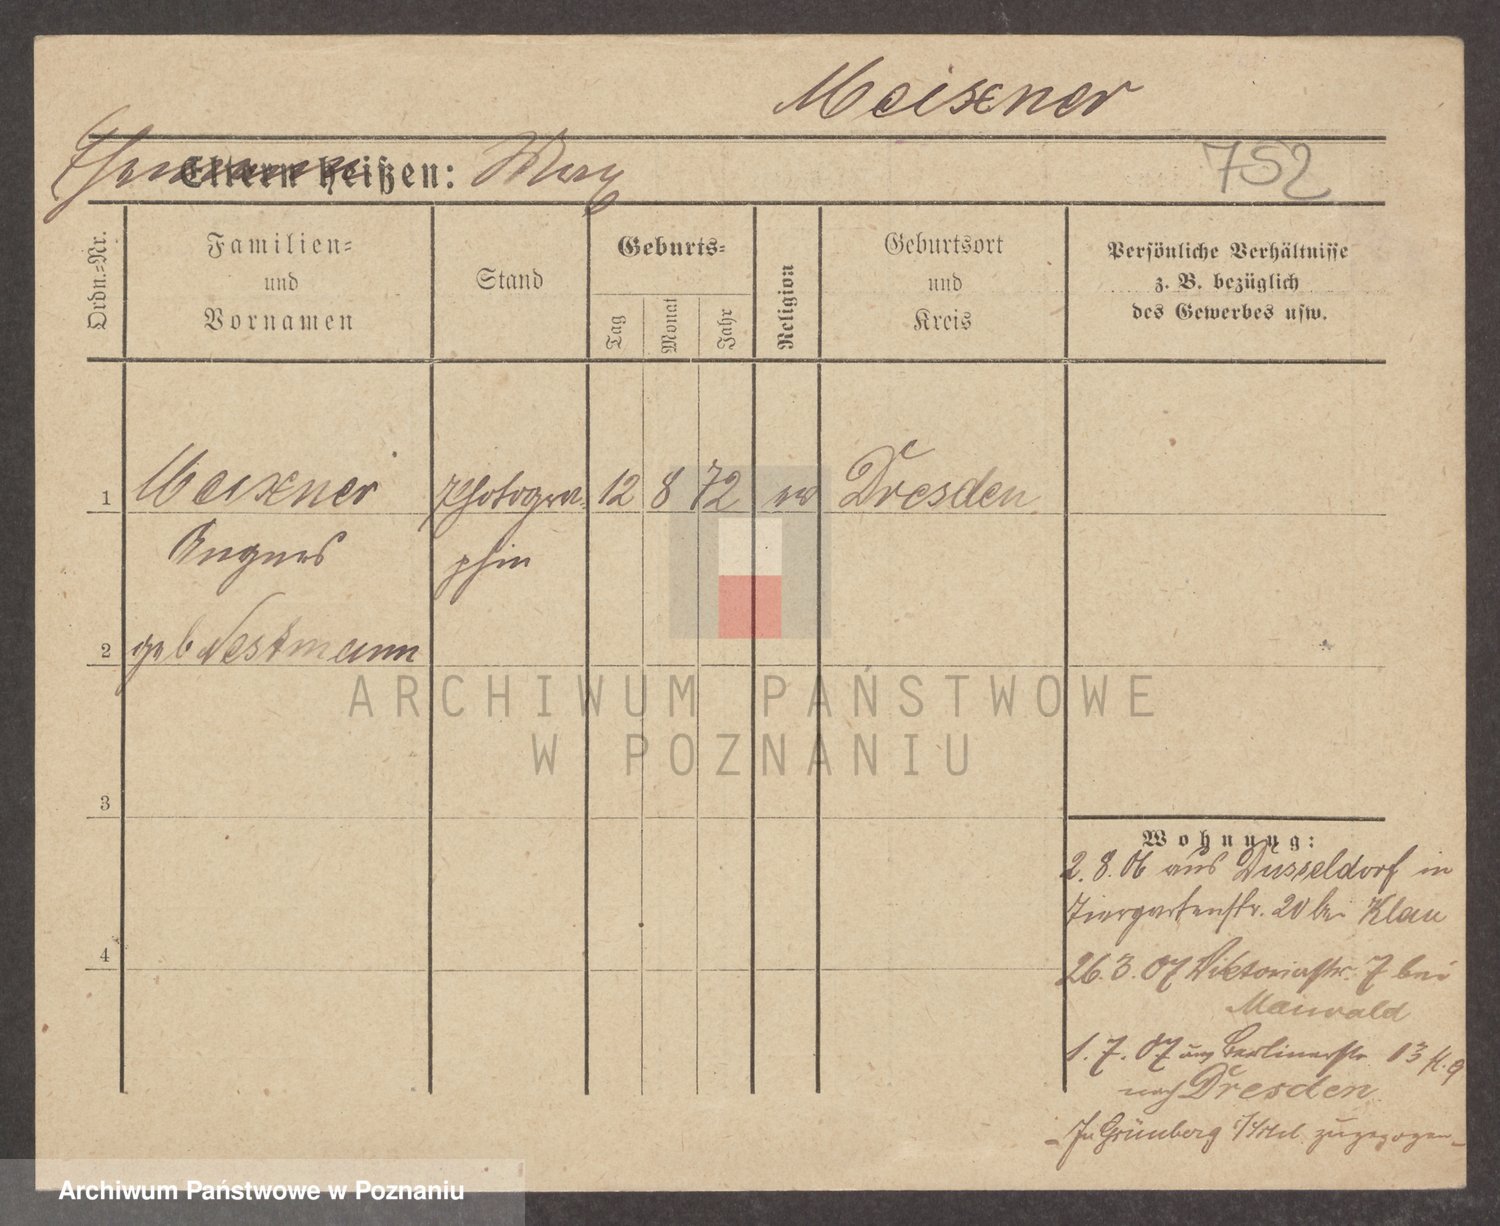 Meixner
Eltern heißen: Marx
752
Ordn.-Nr.
Familien-
und
Vornamen
Stand
Geburts-
Tag
Monat
Jahr
Religion
Geburtsort
und
Kreis
Persönliche Verhältnisse
z. B. bezüglich
des Gewerbes usw.
1
Meixner
Photogra-
12
8
72
ev
Dresden
Angnes
phin
2
geb Nestmann
ARCHIWUM PAŃSTWOWE
W POZNANIU
3
Wohnung:
2. 8. 06 aus Düsseldorf in
Tiergartenstr. 20 bei Klau
4
26. 3. 07 Viktoriastr. 7 bei
Maiwald
1. 7. 07 Berlinerstr. 13
nach Dresden
In Grünberg zugezogen
Archiwum Państwowe w Poznaniu